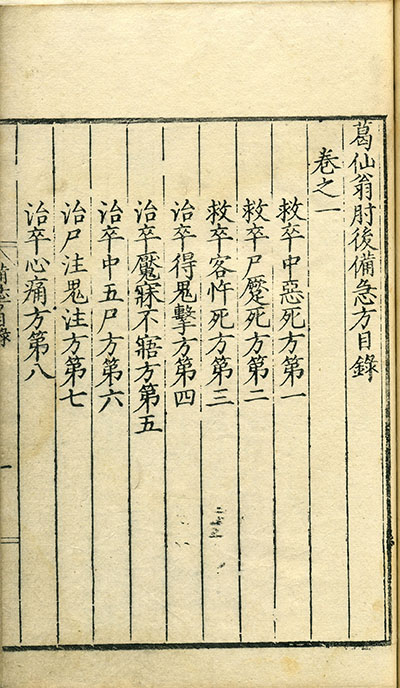 葛仙翁肘後備急方目錄
卷之一
救卒中惡死方第一
救卒尸蹷死方第二
救卒客忤死方第三
治卒得鬼擊方第四
治卒魘寐不寤方第五
治卒中五尸方第六
治尸注鬼注方第七
治卒心痛方第八